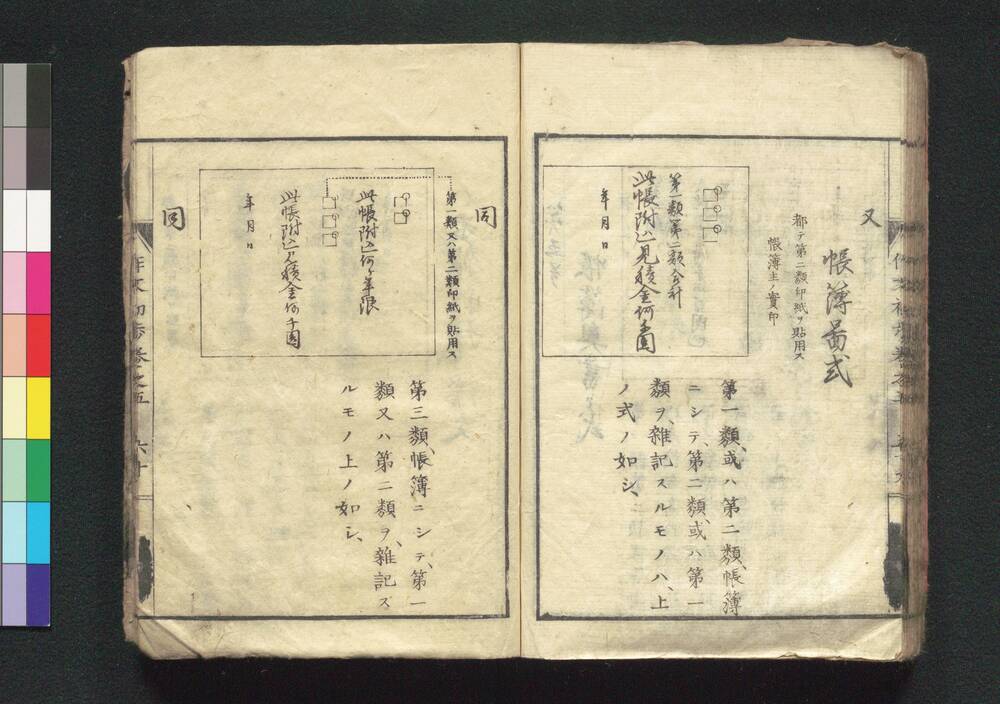 又
帳簿啚式
都テ第二類印紙ヲ貼用ス
帳簿主ノ實印
第一類第二類合計
此帳附込見積金何千圓
年月日
第一類、或ハ第二類、帳簿
ニシテ、第二類、或ハ第一
類ヲ、雑記スルモノハ、上
ノ式ノ如シ、
同
第一類又ハ第二類印紙ヲ貼用ス
此帳附込何ヶ年限
此帳附込見積金何千圓
年月日
第三類、帳簿ニシテ、第一
類又ハ第二類ヲ、雑記ス
ルモノ上ノ如シ、
同
作文初歩巻之五
六十